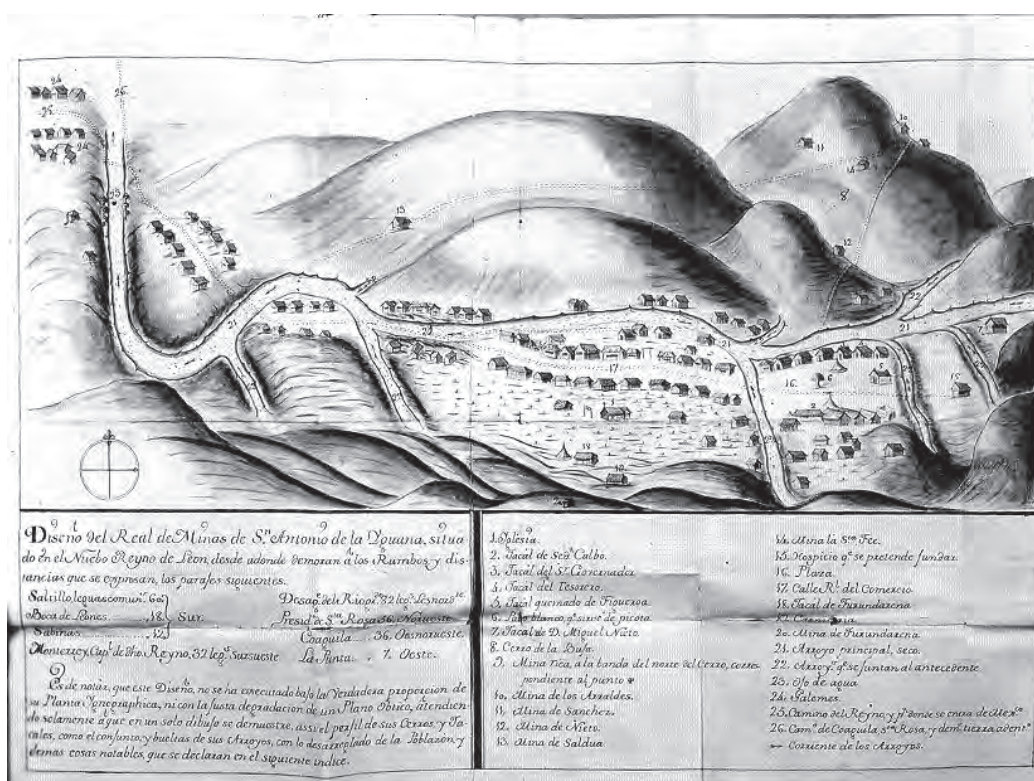 Diseño del Real de Minas de Sn. Antonio de la Youana, situa
do en el Nuebo Reyno de Leon, desde adonde demoran â los Rumbos, y dis
tancias que se expresan, los parajes siguientes.
Saltillo, leguas comun.s 60
Boca de Leones .18. Sur.
Sabinas 12
Monterrey, Capl. de dho. Reyno, 32 legs. Sursueste
32 legs. Lesnorste.
Presido. de Sta. Rosa 36. Norueste
Coaguila . . 36. Oesnorueste.
La Punta . . 7. Oeste.
Es de notar, que este Diseño, no se ha executado bajo la Verdadera proporcion de
su Planta Ygnographica, ni con la justa degradacion de un Plano Obtico, atendien
do solamente â que en un solo dibujo se demuestre, assi el perfil de sus Cerros, y Ja
cales, como el conjunto, y bueltas de sus Arroyos, con lo desarreglado de la Poblazon, y
demas cosas notables, que se declaran en el siguiente indice.
1. Yglesia.
2. Jacal de Calbo.
3. Jacal del Sr. Governador
4. Jacal del Tesorero.
5. Jacal quemado de Figueroa
6. Palo blanco, qe. sirve de picota.
7. Jacal de D. Miguel Nieto.
8. Cerro de la Bufa.
9. Mina rica, a la banda del norte del Cerro, corres
pondiente al punto
10. Mina de los Arzaldes.
11. Mina de Sanchez.
12. Mina de Nieto.
13. Mina de Saldua.
14. Mina la Sta. Fee.
15. Hospicio qe. se pretende fundar.
16. Plaza.
17. Calle Rl. del Comercio.
18. Jacal de Furundarena
20. Mina de Furundarena
21. Arroyo principal, seco.
22. Arroys. qe. se juntan al antecedente
23. Ojo de agua
24. Jalomes.
25. Camino del Reyno, y pr. donde se entra de Mexco.
26. Camo. de Coaguila Sta. Rosa, y dems. tierra adentro
Corriente de los Arroyos.